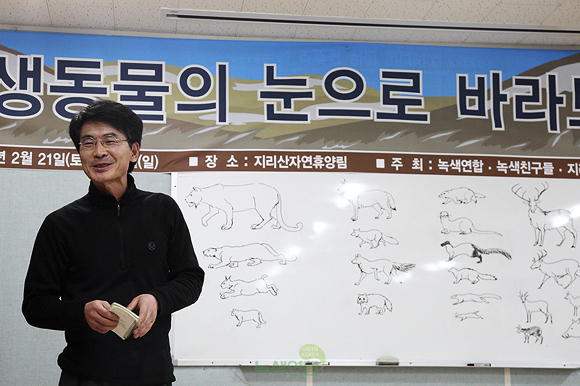 생동물의 눈으로 바라보
년 2월 21일(토 (일) ■ 장 소 : 지리산자연휴양림 ■ 주 최 : 녹색연합 · 녹색친구들 · 지리